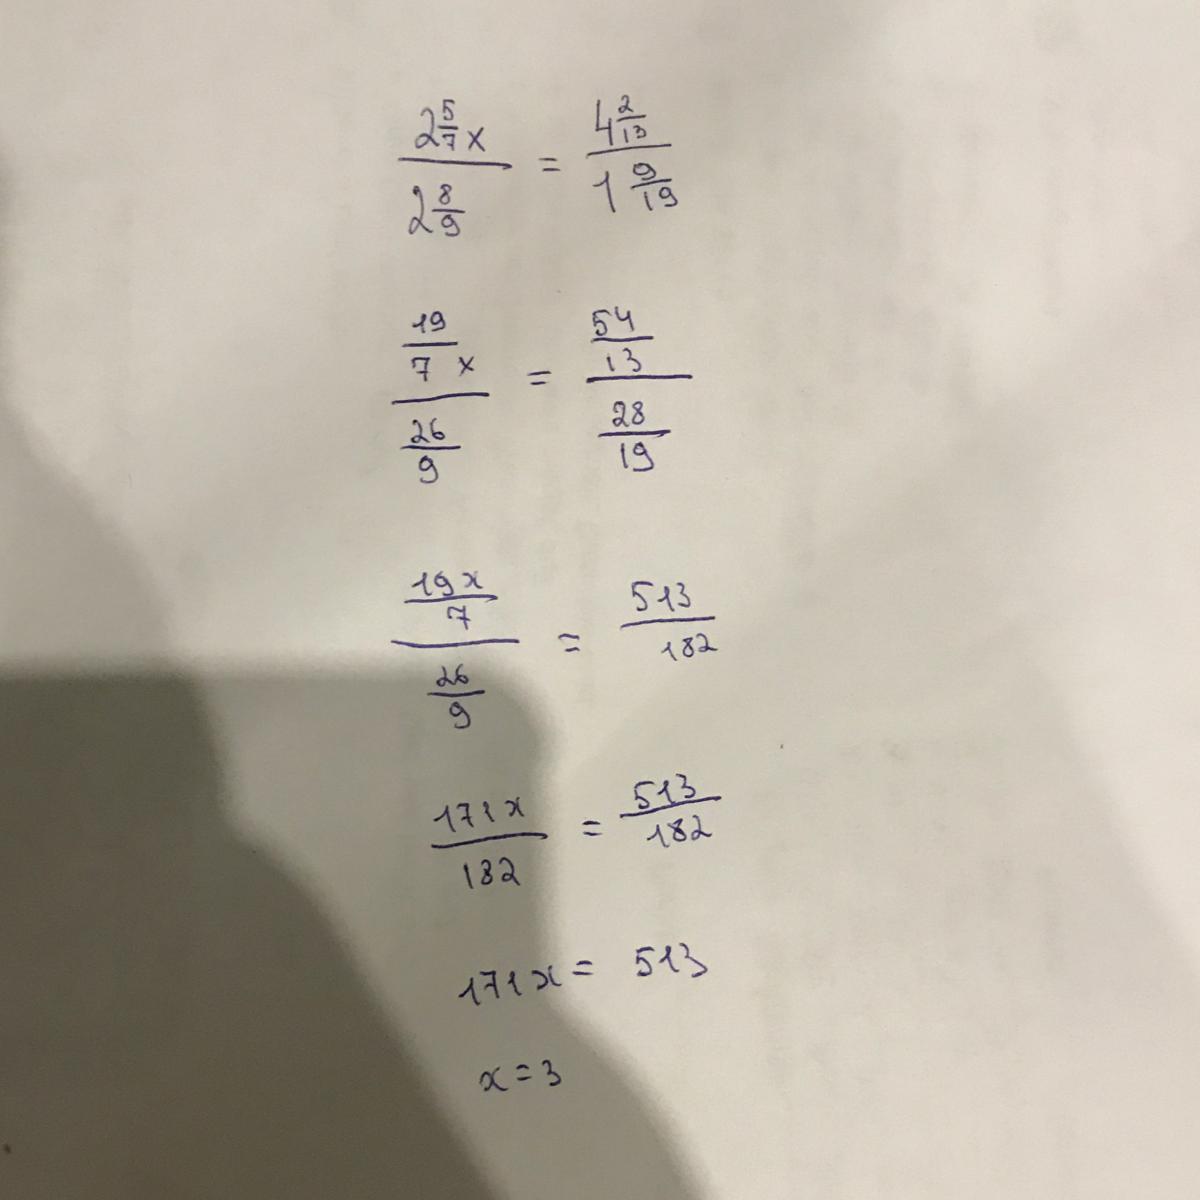 2 5/7 x / 2 8/9 = 4 2/13 / 1 9/19
19/7 x / 26/9 = 54/13 / 28/19
19x/7 / 26/9 = 513/182
171x/182 = 513/182
171x = 513
x = 3